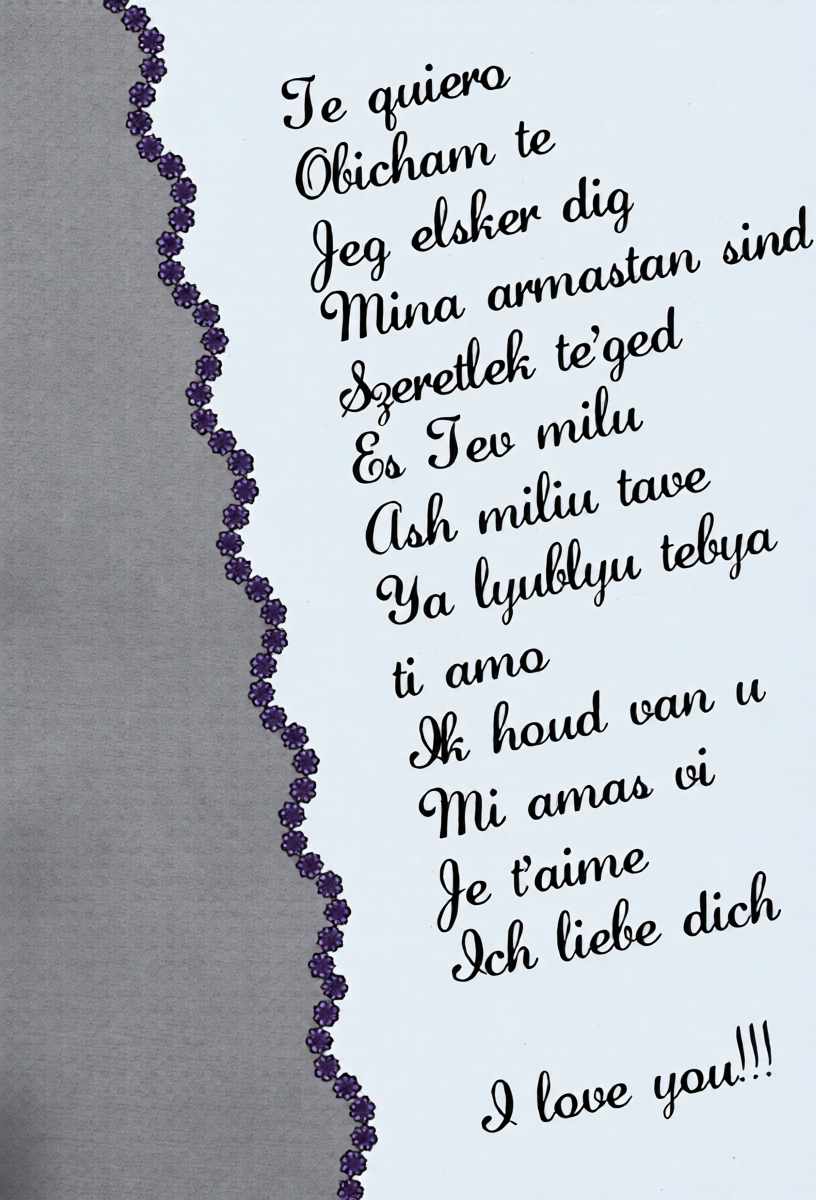 Te quiero
Obicham te
Jeg elsker dig
Mina armastan sind
Szeretlek te'ged
Es Tev milu
Ash miliu tave
Ya lyublyu tebya
ti amo
Ik houd van u
Mi amas vi
Je t'aime
Ich liebe dich
I love you!!!